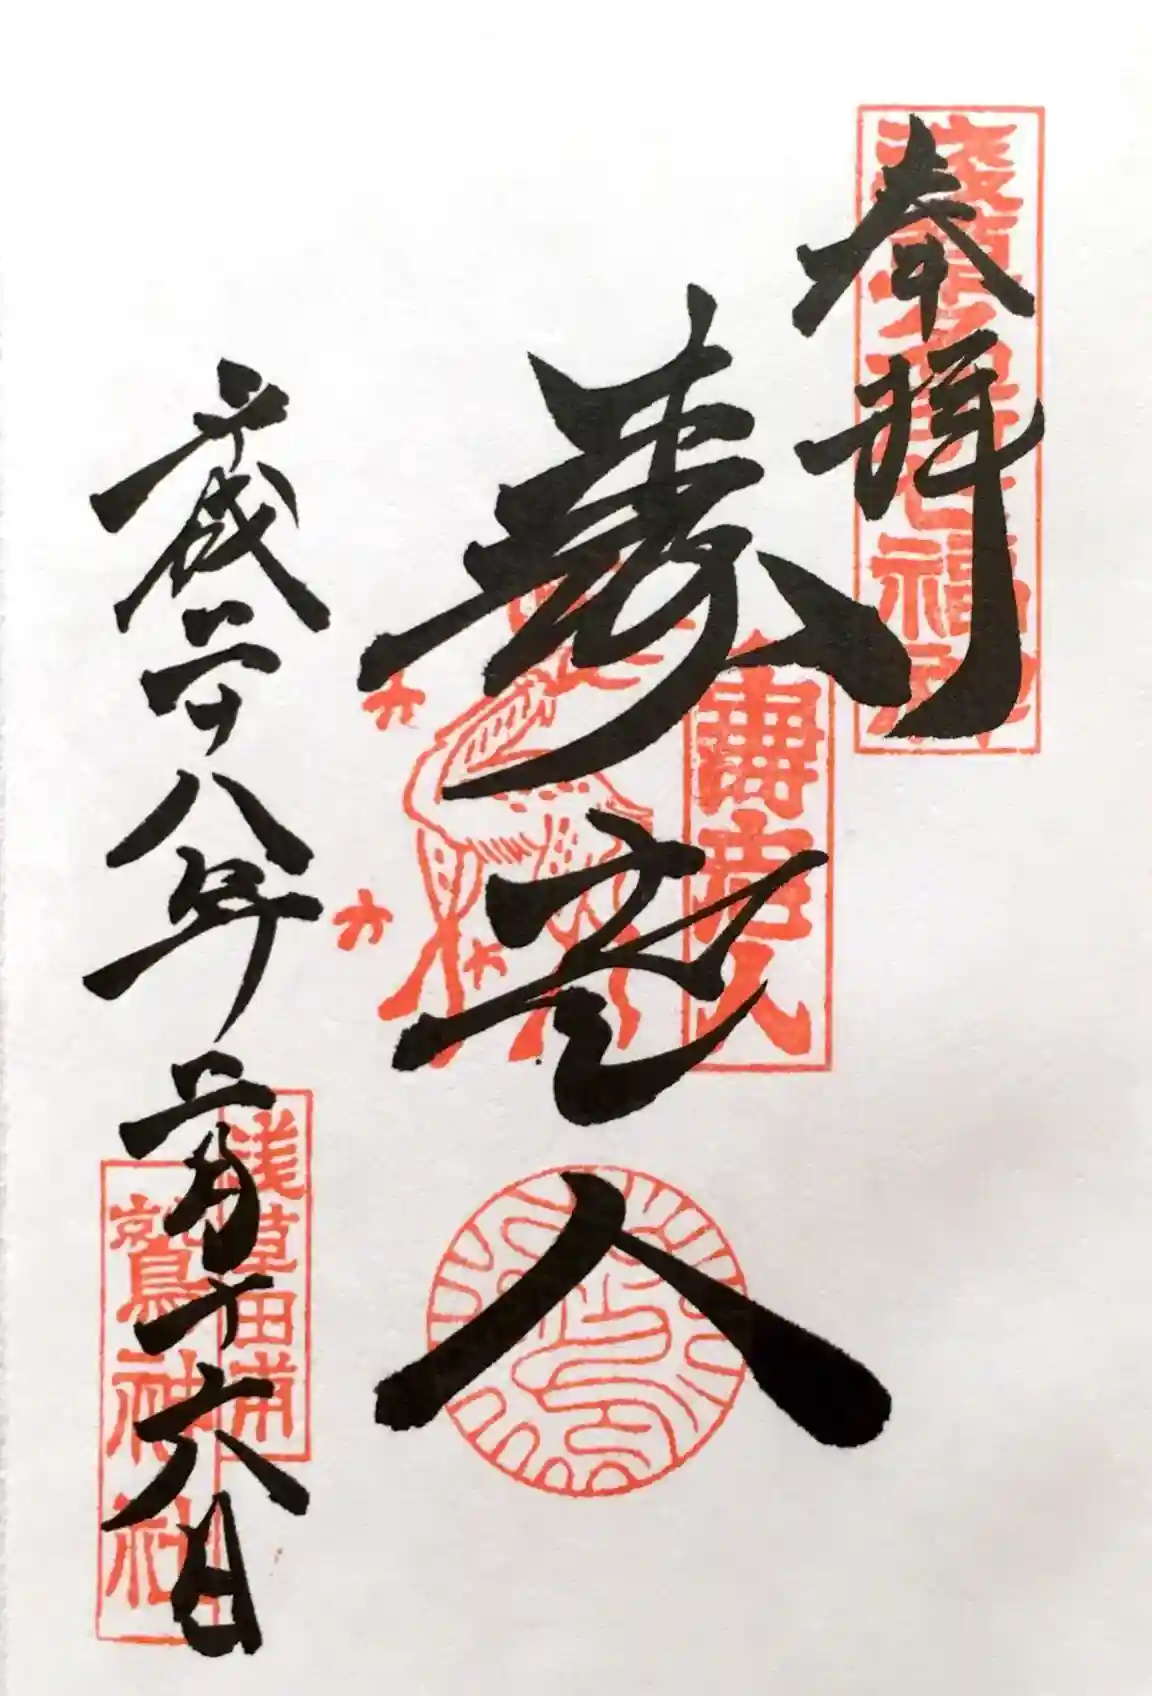 奉拝
浅草名所七福神
壽老人
壽老人
平成二十八年二月十六日
浅草田甫
鷲神社